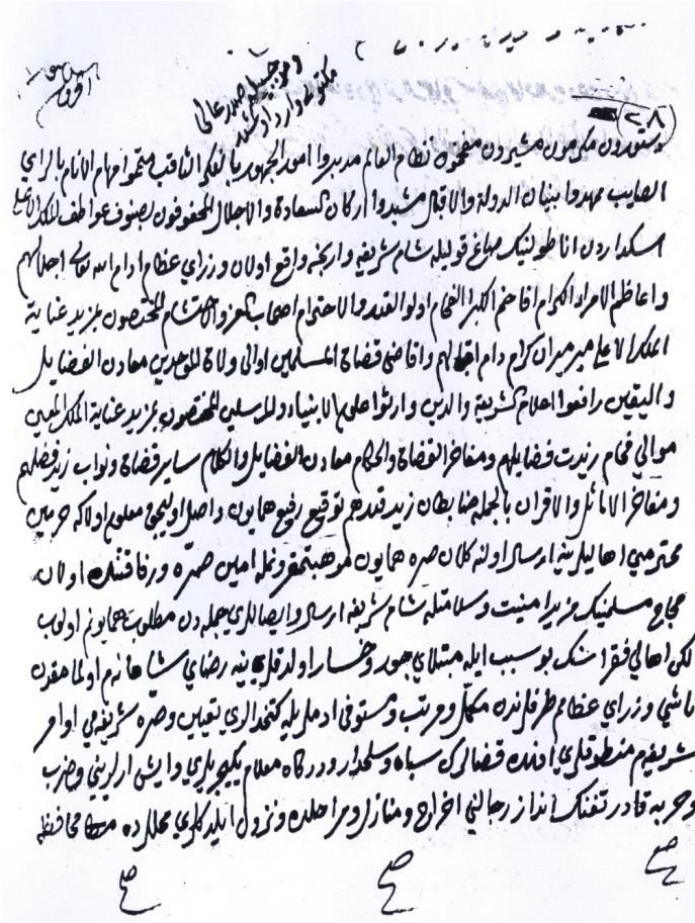 وموجبيله صدر عالى
مكتوب وارد اولمشدر
(٢٨)
دستوردن مكرمون مشيردن مفخمون نظام العالم مدبروا امور الجمهور بالفكر الثاقب متمموا مهام الانام بالراي
الصايب ممهدوا بنيان الدولة والاقبال مشيدوا اركان السعادة والاجلال المحفوفون بصنوف عواطف الملك الاعلى
اسكداردن اناطولينك صاغ قوليله شام شريفه وارنجه واقع اولان وزراي عظام ادام الله تعالى اجلالهم
واعاظم الامراء الكرام افاخم الكبراء الفخام اولوا القدر والاحترام اصحاب العز والاحتشام المختصون بمزيد عناية
الملك الاعلى ميرميران كرام دام اقبالهم واقاضى قضاة المسلمين اوالى ولاة الموحدين معادن الفضايل
واليقين رافعوا اعلام الشريعة والدين وارثوا علوم الانبياء والمرسلين المختصون بمزيد عناية الملك المعين
موالي فخام زيدت فضايلهم ومفاخر القضاة والحكام معادن الفضايل والكلام ساير قضاة ونواب زيد فضلهم
ومفاخر الاماثل والاقران بالجمله ضابطان زيد قدرهم توقيع رفيع همايون واصل اوليجق معلوم اولاكه حرمين
محترمين اهاليلرينه ارسال اولنه كلان صره همايون موهبتمقرونمله امين صره ورفاقتنده اولان
حجاج مسلمينك مزيد امنيت وسلامتله شام شريفه ارسال وايصاللري جمله دن مطلوب همايونم اولوب
لكن اهالي فقرانك بو سبب ايله مبتلاي جور وخسار اولدقلرينه رضاي شاهانه م اولمامقدن
ناشي وزراي عظام طرفلرندن مكمل ومرتب ومستوفى ادملريله كتخدالري تعيين وصره شريفه مى اوامر
شريفم منطوقلري اوزره قضالرك سپاه وسلحدار ودركاه معلام يكيچريلري وايش ارلريني وضرب
وحربه قادر تفنك انداز رجالنى اخراج ومنازل ومراحلده ونزول ايلدكلري محللرده محافظه
صح
صح
صح